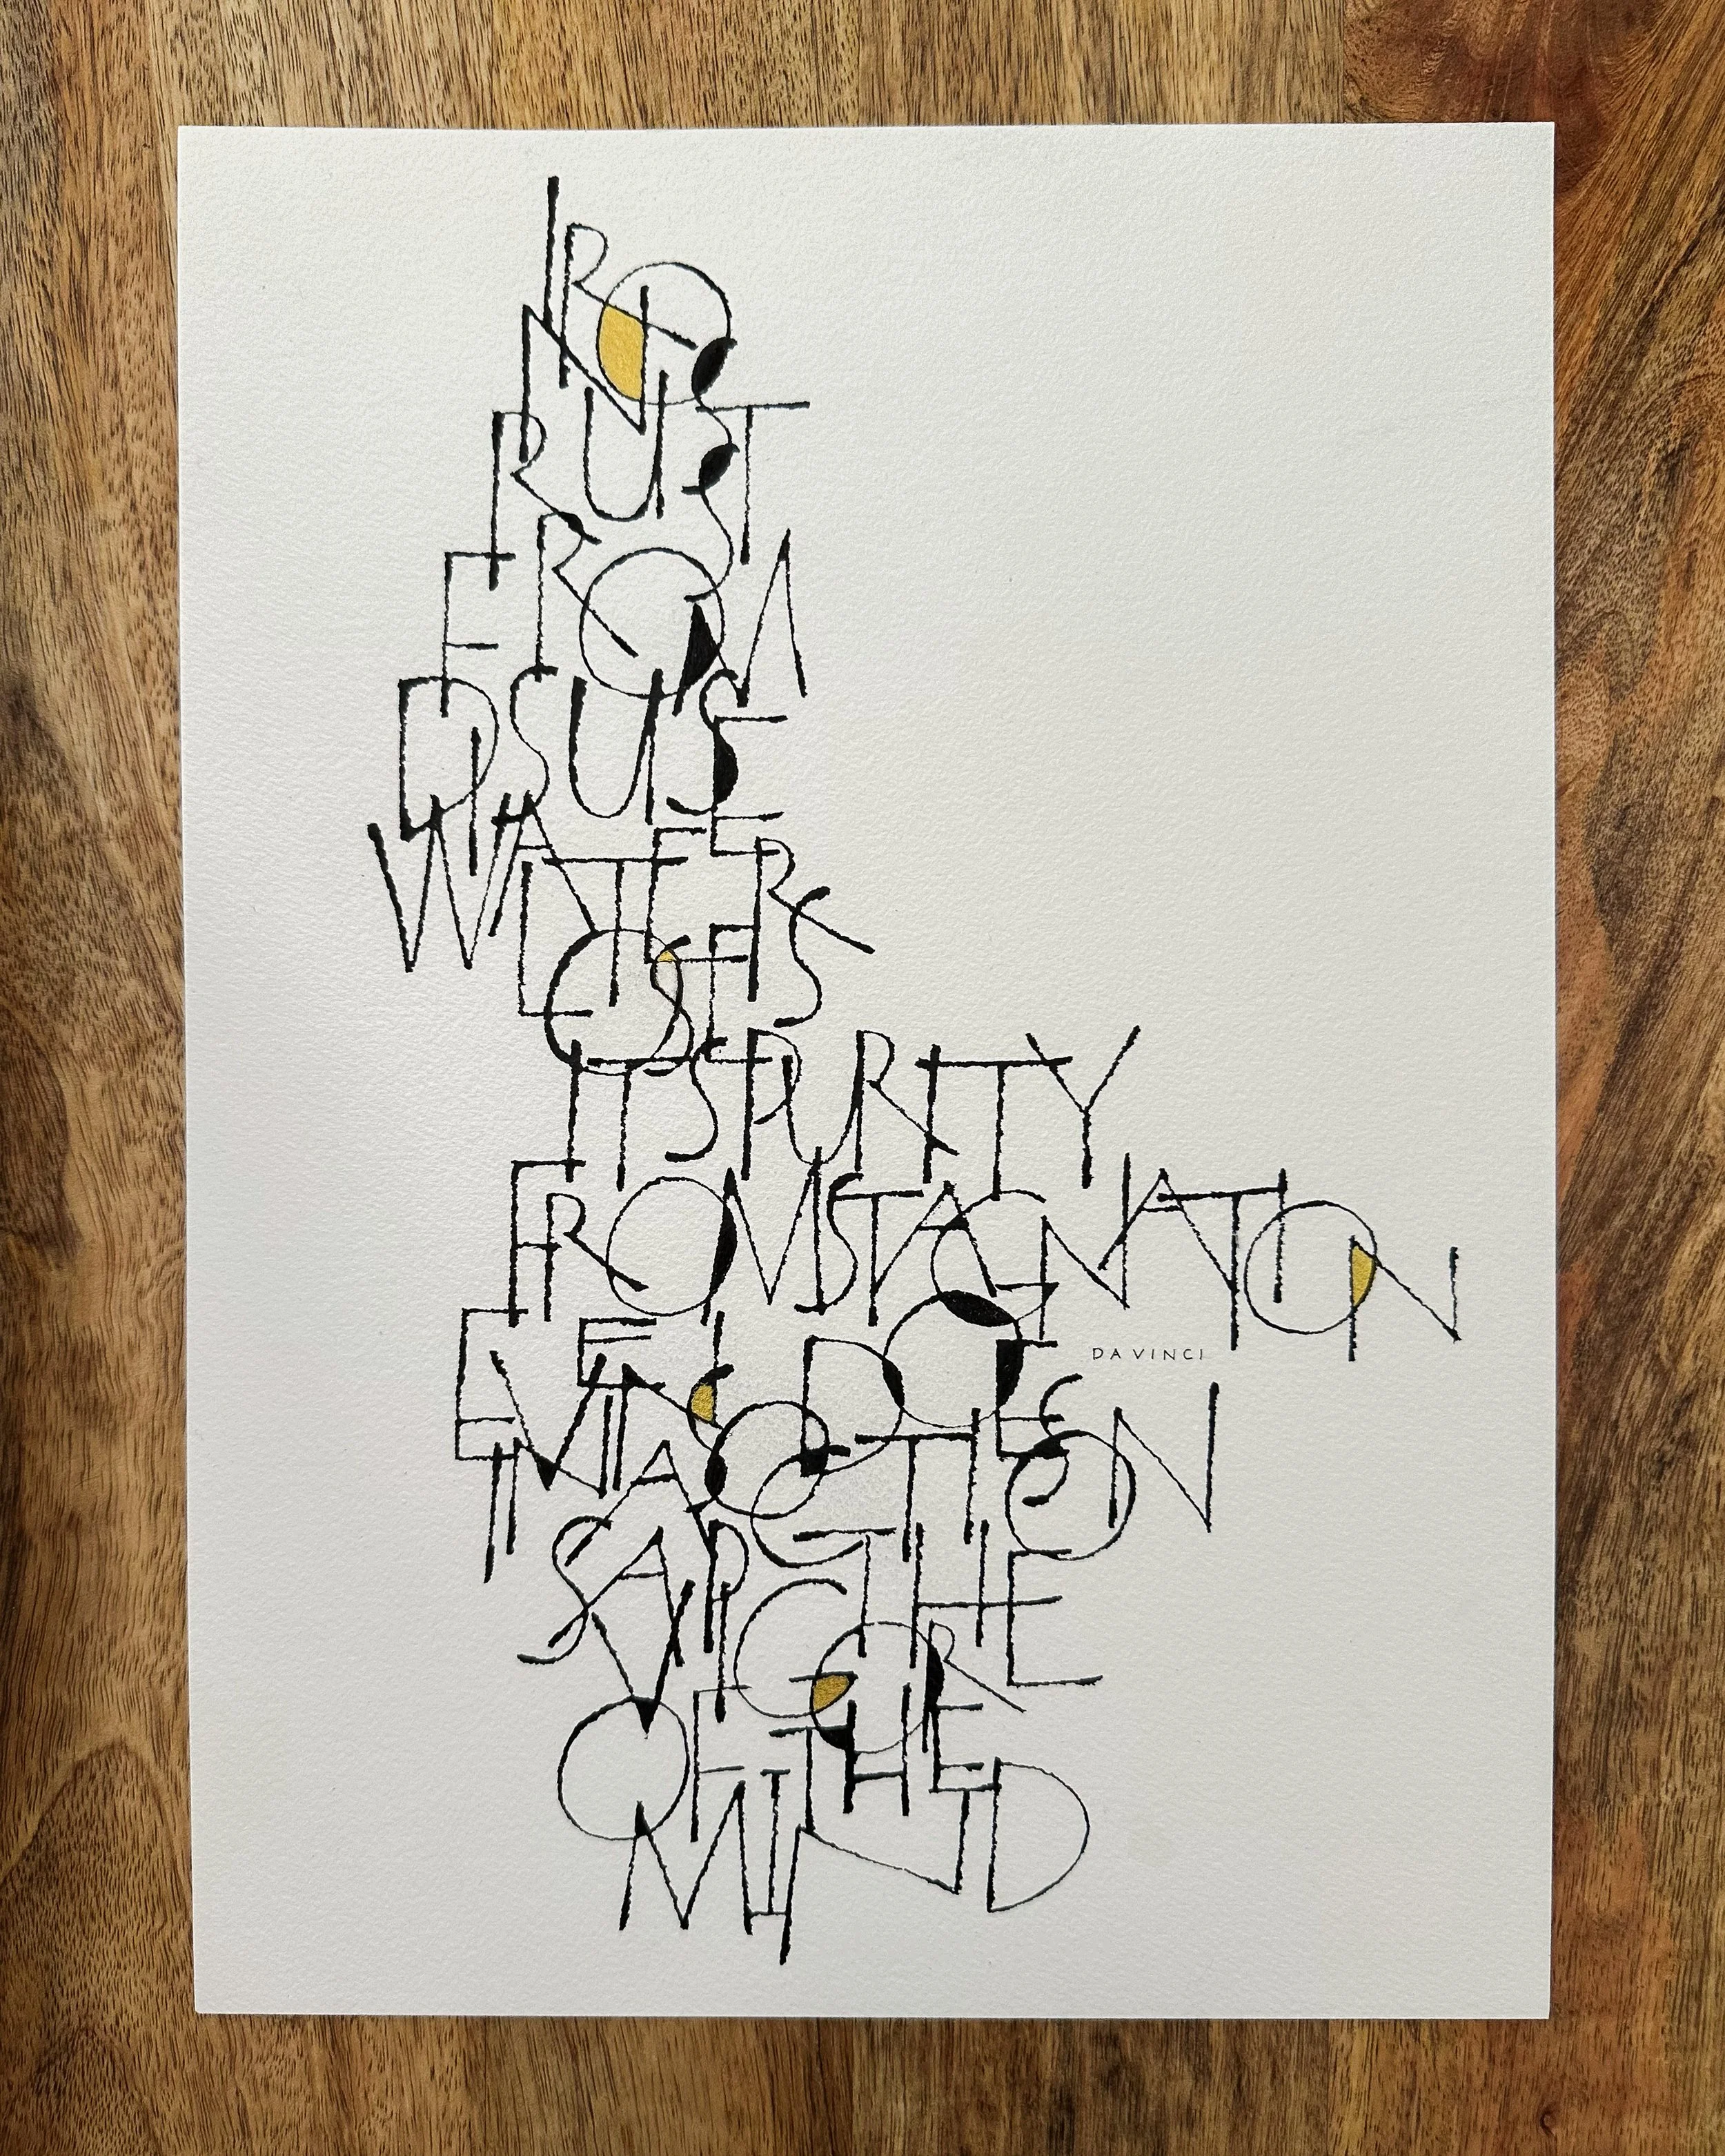 IRON
RUSTS
FROM
DISUSE
WATER
LOSES
ITS PURITY
FROM STAGNATION
EVEN SO DOES
DA VINCI
INACTION
SAP THE
VIGOR
OF THE
MIND